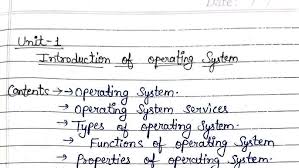 Date: / /
Unit-1
Introduction of operating System
Contents → → Operating System.
→ Operating System Services
→ Types of operating System.
→ Functions of operating System
→ Properties of operating System.